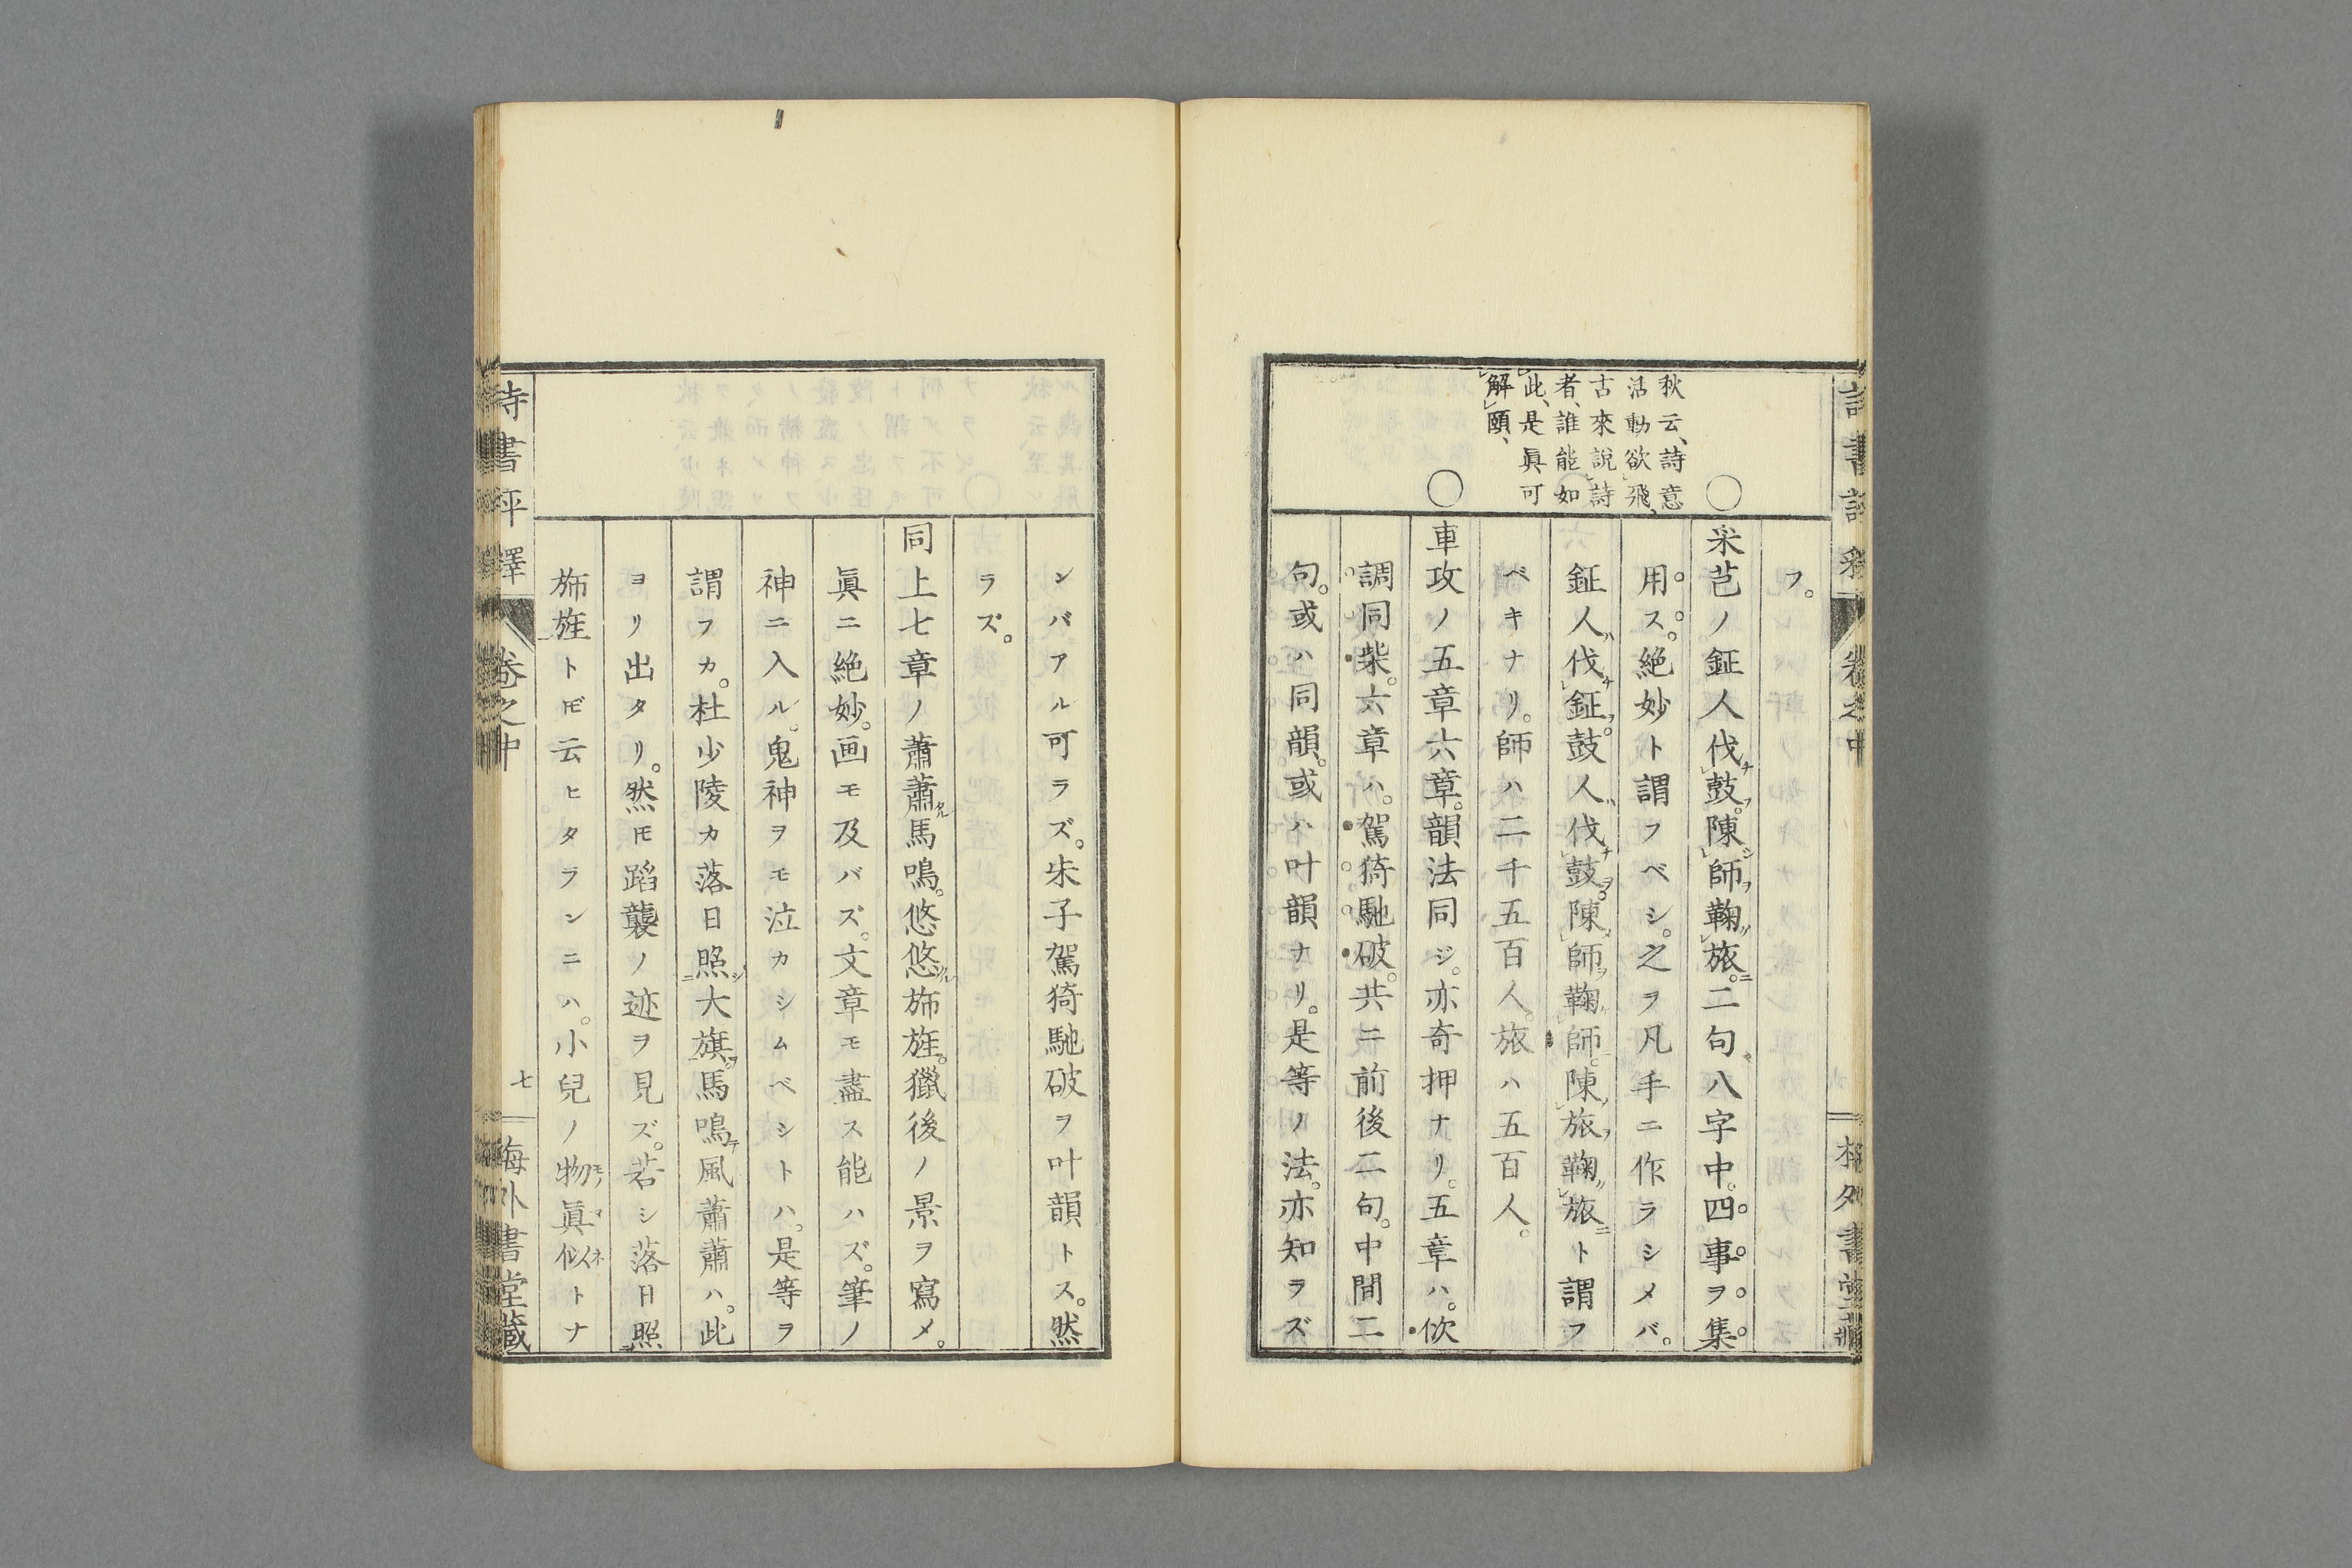 秋云、詩意
活動欲飛、
古來說詩
者、誰能如
此、是眞可
解頤、
フ。
○采芑ノ鉦人伐鼓。陳師鞠旅。二句八字中。四事ヲ集
用ス。絶妙ト謂フベシ。之ヲ凡手ニ作ラシメバ。
鉦人伐鉦。鼓人伐鼓。陳師鞠師。陳旅鞠旅ト謂フ
ベキナリ。師ハ二千五百人。旅ハ五百人。
○車攻ノ五章六章。韻法同ジ。亦奇押ナリ。五章ハ。佽
調同柴。六章ハ。駕猗馳破。共ニ前後二句。中間二
句。或ハ同韻。或ハ叶韻ナリ。是等ノ法。亦知ラズ
ンバアル可ラズ。朱子駕猗馳破ヲ叶韻トス。然
ラズ。
同上七章ノ蕭蕭馬鳴。悠悠斾旌。獵後ノ景ヲ寫メ。
眞ニ絶妙。画モ及バズ。文章モ盡ス能ハズ。筆ノ
神ニ入ル。鬼神ヲモ泣カシムベシトハ。是等ヲ
謂フカ。杜少陵カ落日照大旗。馬鳴風蕭蕭ハ。此
ヨリ出タリ。然𪜈蹈襲ノ迹ヲ見ズ。若シ落日照
斾旌ト𪜈云ヒタランニハ。小兒ノ物眞似トナ
詩書評釋 卷之中 七 海外書堂藏